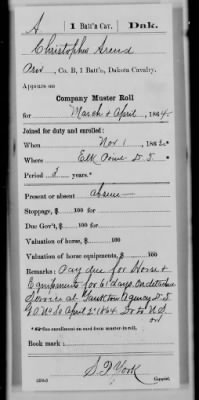 A | 1 Batt'n Cav. | Dak.
Christopher Arend
Prvt, Co. B, 1 Batt'n, Dakota Cavalry.
Appears on
Company Muster Roll
for March & April, 1864.
Joined for duty and enrolled:
When Nov 1, 1862*
Where Elk Point D. T.
Period 3 years.*
Present or absent absent
Stoppage, $ 100 for
Due Gov't, $ 100 for
Valuation of horse, $ 100
Valuation of horse equipments, $ 100
Remarks: Pay due for Horse &
Equipments for 61 days. On detached
service at Yankton Agency D. T.
S. O. No April 2 1864
* See enrollment on card from muster-in roll.
Book mark:
S. D. York
Copyist.